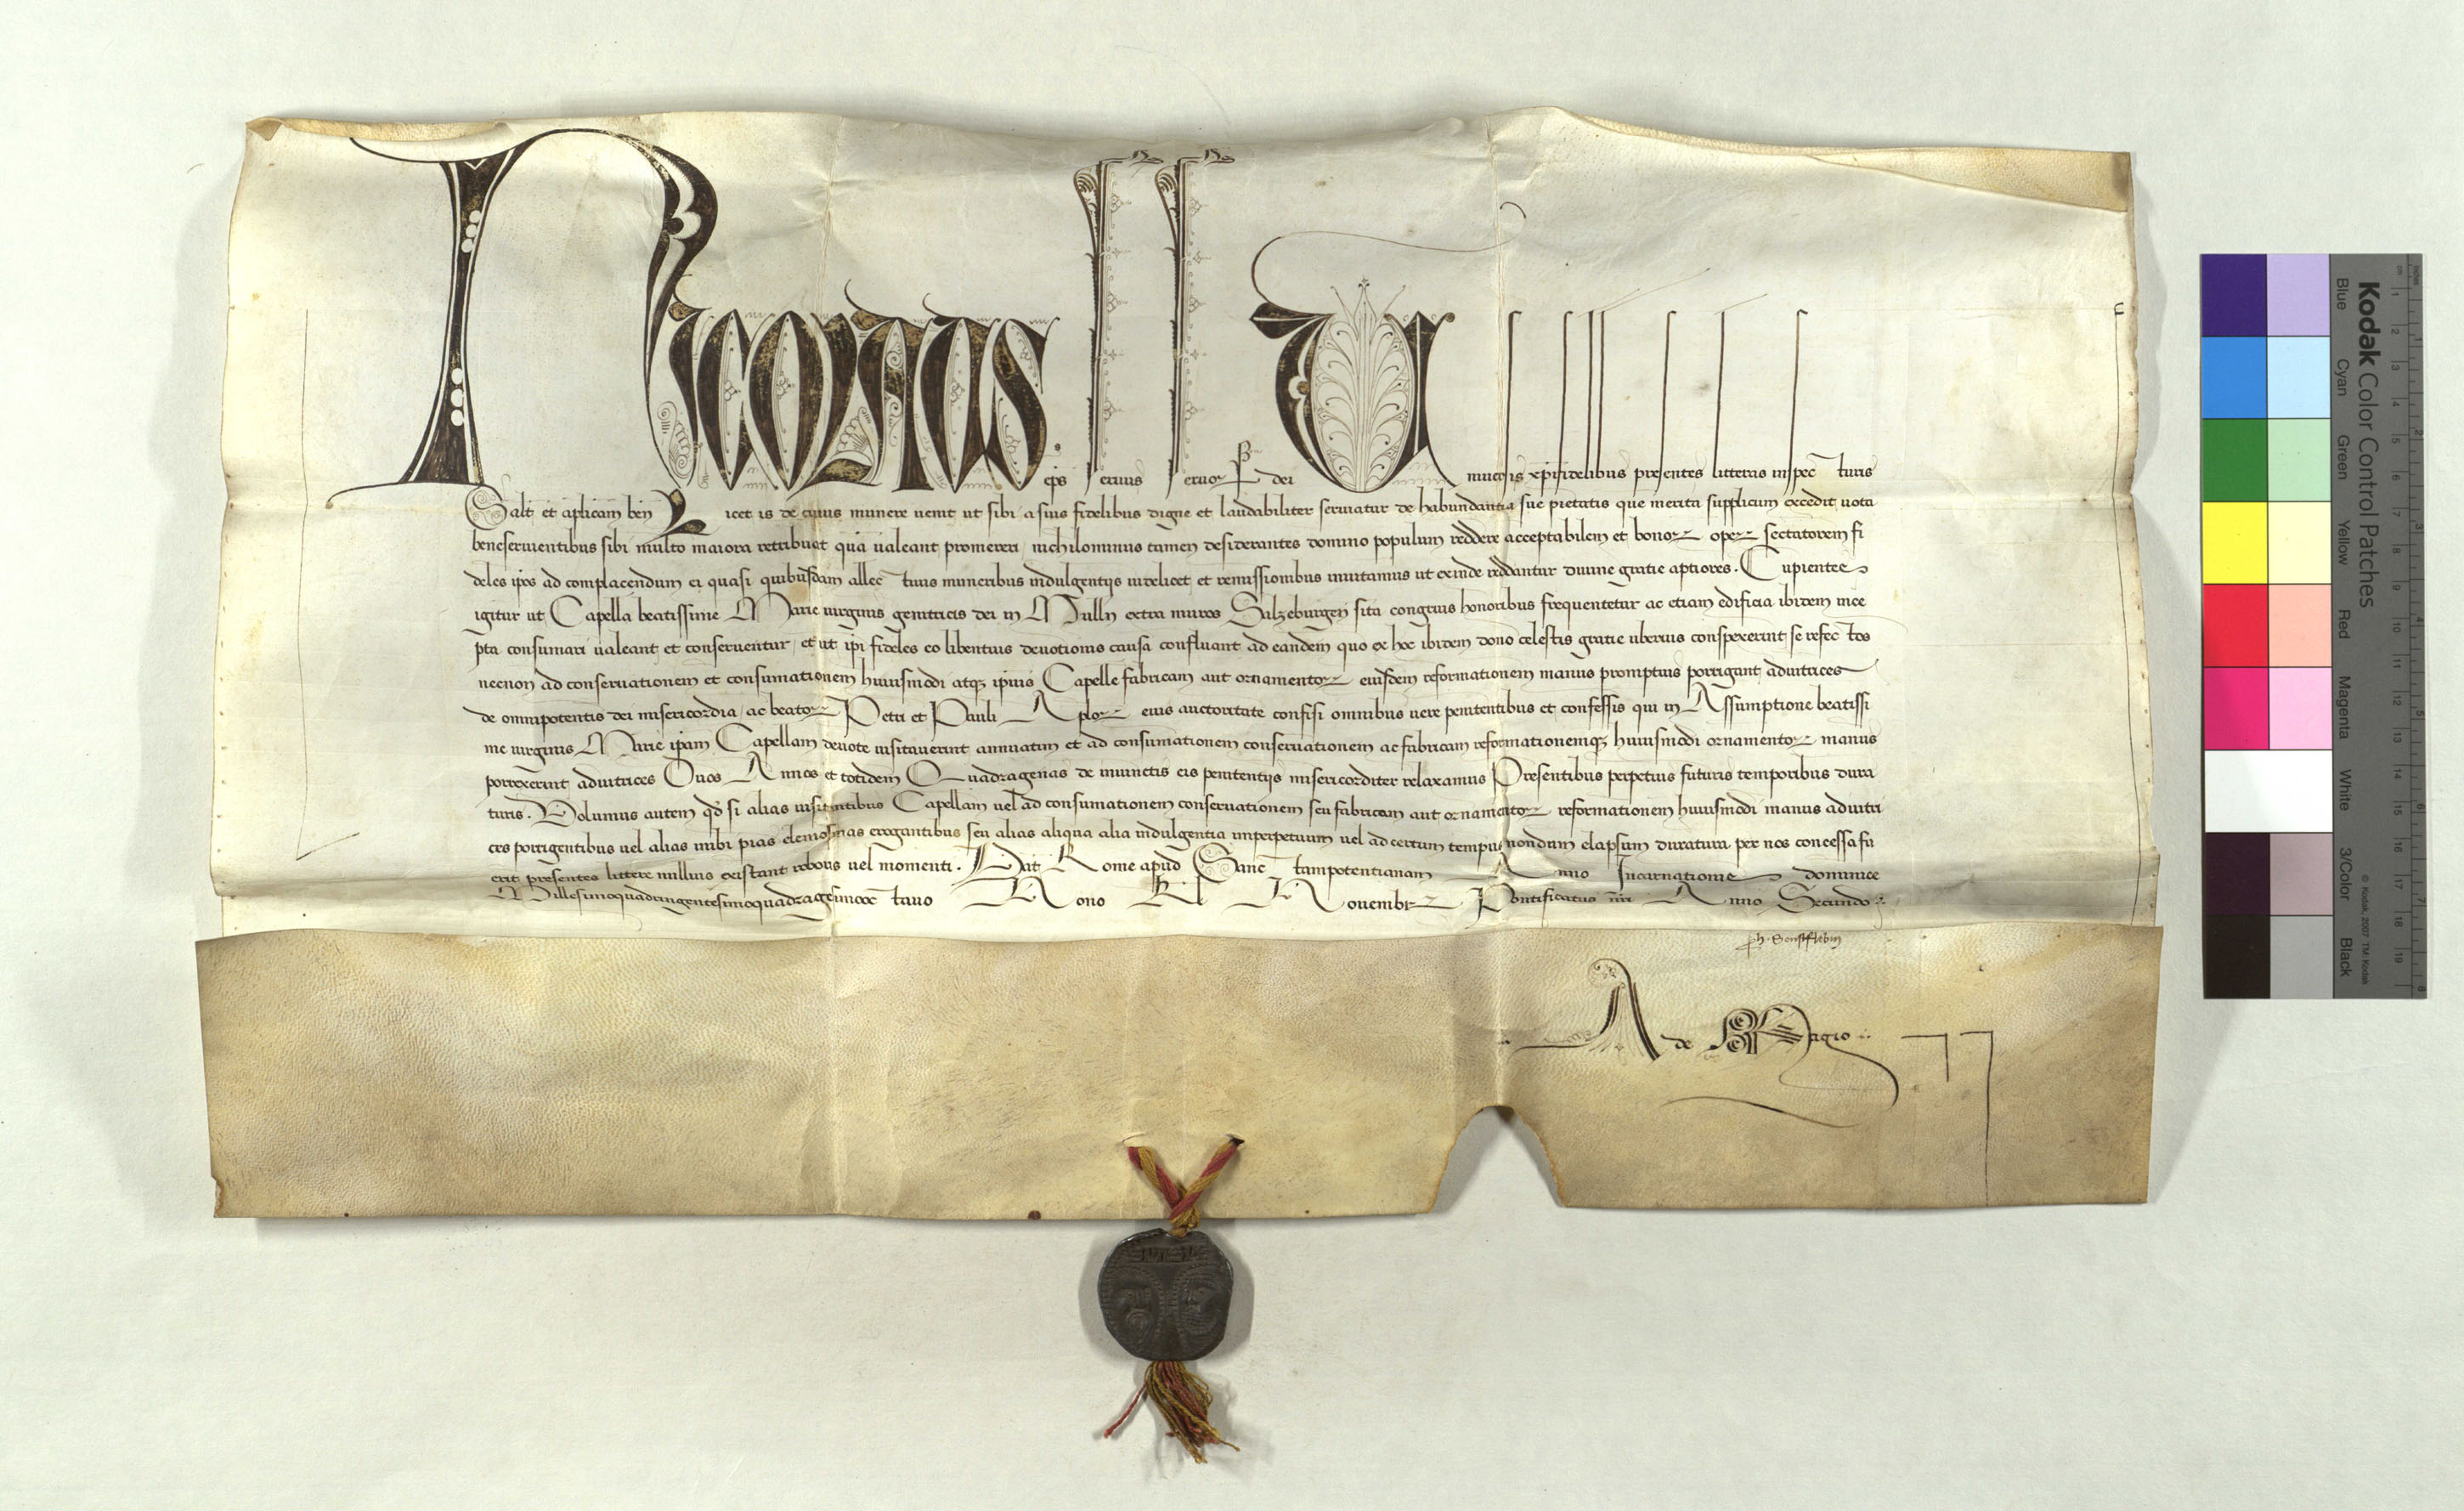 Nicolaus eps seruus seruor dei Uniuersis xpifidelibus presentes litteras inspec turis
Salt et aplicam ben Licet is de cuius munere uenit ut sibi a suis fidelibus digne et laudabiliter seruiatur de habundantia sue pietatis que merita supplicum excedit uota
beneseruientibus sibi multo maiora retribuat qua ualeant promereri nichilominus tamen desiderantes domino populum reddere acceptabilem et bonor oper sectatorem fi
deles ipos ad complacendum ei quasi quibusdam allec tiuis muneribus indulgentijs uidelicet et remissionibus inuitamus ut exinde reddantur diuine gratie aptiores. Cupientes
igitur ut Capella beatissime Marie uirginis genitricis dei in Mulln extra muros Salzeburgen sita congruis honoribus frequentetur ac etiam edificia ibidem ince
pta consumari ualeant et conseruentur, et ut ipi fideles eo libentius deuotionis causa confluant ad eandem quo ex hoc ibidem dono celestis gratie uberius conspexerint se refec tos
necnon ad conseruationem et consumationem huiusmodi atq ipius Capelle fabricam aut ornamentor eiusdem reformationem manus promptius porrigant adiutrices
de omnipotentis dei misericordia, ac beator Petri et Pauli Aplor eius auctoritate confisi omnibus uere penitentibus et confessis qui in Assumptione beatissi
me uirginis Marie ipam Capellam deuote uisitauerint annuatim et ad consumationem conseruationem ac fabricam reformationemq huiusmodi ornamentor manus
porrexerint adiutrices Duos Annos et totidem Quadragenas de iniunctis eis penitentijs misericorditer relaxamus Presentibus perpetuis futuris temporibus dura
turis. Volumus autem qd si alias uisitantibus Capellam uel ad consumationem conseruationem seu fabricam aut ornamentor reformationem huiusmodi manus adiutri
ces porrigentibus uel alias inibi pias elemosinas erogantibus seu alias aliqua alia indulgentia imperpetuum uel ad certum tempus nondum elapsum duratura per nos concessa fu
erit presentes littere nullius existant roboris uel momenti. Dat Rome apud Sanc tampotentianam Anno Incarnationis dominice
Millesimoquadringentesimoquadragesimooc tauo Nono Kl Nouembr Pontificatus nri Anno Secundo
A de Magio
Kodak Color Control Patches
Blue Cyan Green Yellow Red Magenta White 3/Color Black
© Kodak, 2007 TM: Kodak
cm 1 2 3 4 5 6 7 8 9 10 11 12 13 14 15 16 17 18 19
inches 1 2 3 4 5 6 7 8